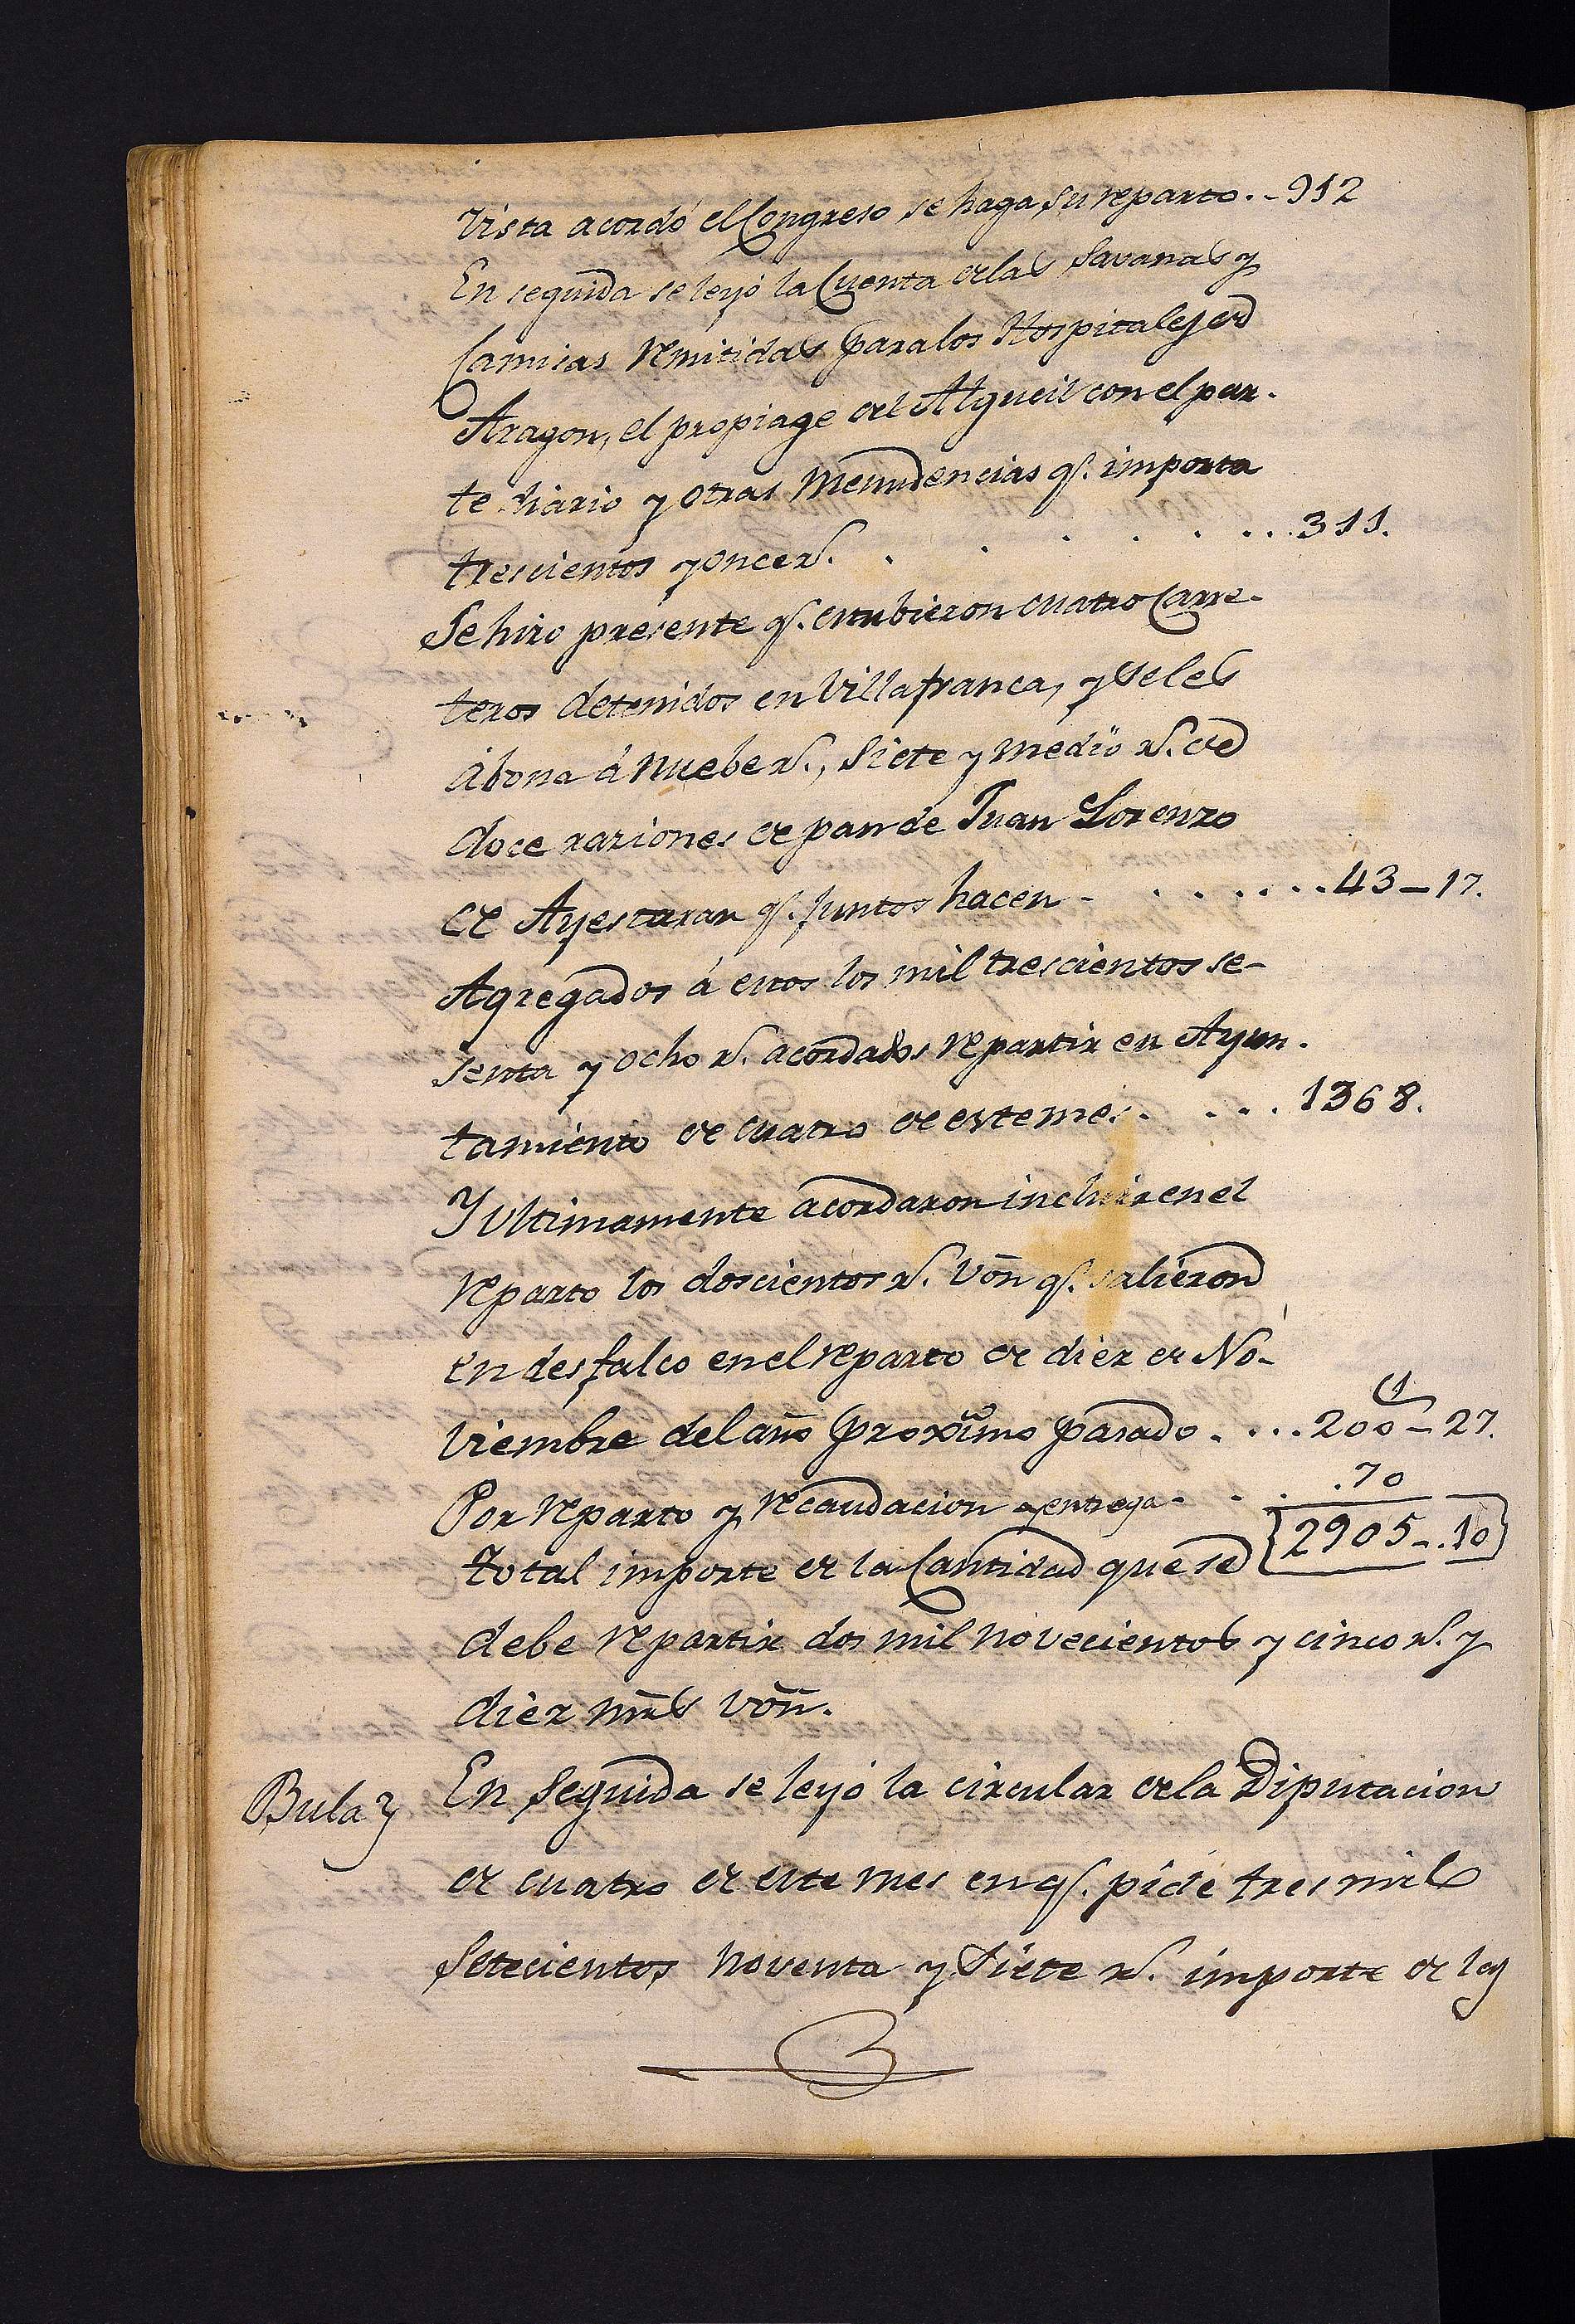 Vista acordó el Congreso se haga su reparto. - 912
En seguida se leyó la Cuenta de las Savanas y
Camisas remitidas para los Hospitales de
Aragon, el propiage del Algucil con el par-
te diario y otras menudencias q.e importa
trescientos y once r.s . . . . . . . 311.
Se hizo presente q.e estubieron cuatro Carre-
teros detenidos en Villafranca, y se les
abona á nuebe r.s, siete y medio r.s de
doce raziones de pan de Juan Lorenzo
de Ayestaran q.e juntos hacen . . . . . . 43 - 17.
Agregados á estos los mil trescientos se-
senta y ocho r.s acordados repartir en Ayun-
tamiento de cuatro de este mes. . . . . 1368.
Y ultimamente acordaron incluir en el
reparto los doscientos r.s von q.e salieron
en desfalco en el reparto de diez de No-
viembre del año proximo pasado . . . . 200 - 27.
Por reparto y recaudacion y entrega . . . . 70
total importe de la Cantidad que se 2905 - 10
debe repartir dos mil novecientos y cinco r.s y
diez mrs von.
Bulas En seguida se leyó la circular de la Diputacion
de cuatro de este mes en q.e pide tres mil
setecientos noventa y siete r.s importe de las